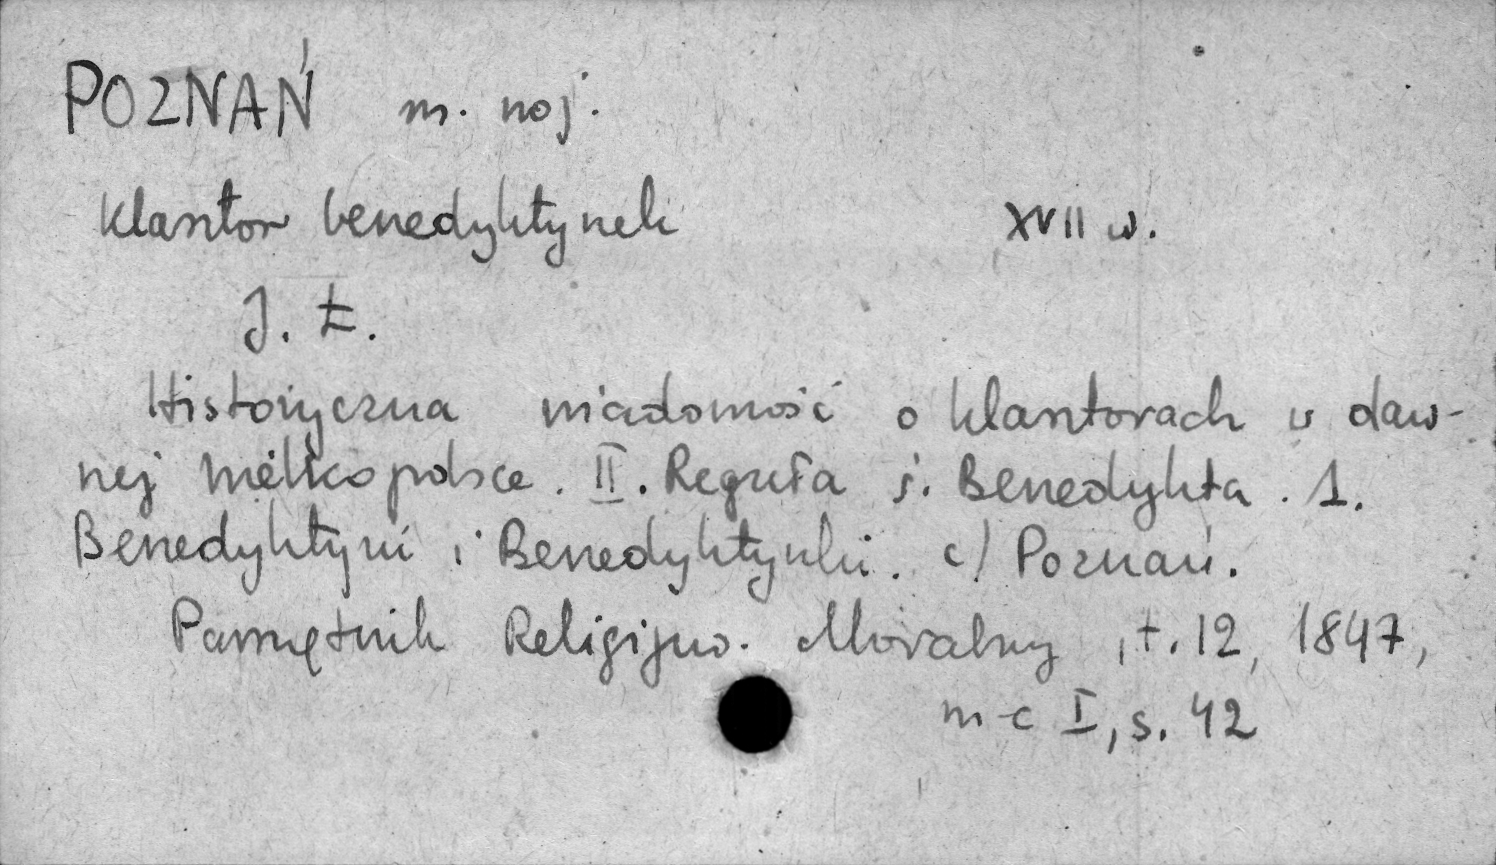 POZNAŃ m. woj.
Klasztor benedyktynek XVII w.
J. Ł.
Historyczna wiadomość o klasztorach w daw-
nej Wielkopolsce. II. Reguła ś. Benedykta. 1.
Benedyktyni i Benedyktynki. c) Poznań.
Pamiętnik Religijno-Moralny, t. 12, 1847,
m-c I, s. 42